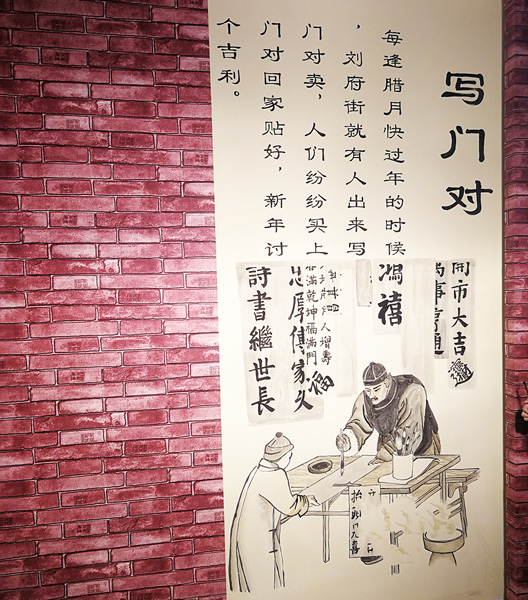 写门对
每逢腊月快过年的时候
，刘府街就有人出来写
门对卖，人们纷纷买上
门对回家贴好，新年讨
个吉利。
開市大吉
萬事亨通
鴻禧
人增壽
滿乾坤福滿門
福
忠厚傳家久
詩書繼世長
抬頭見喜